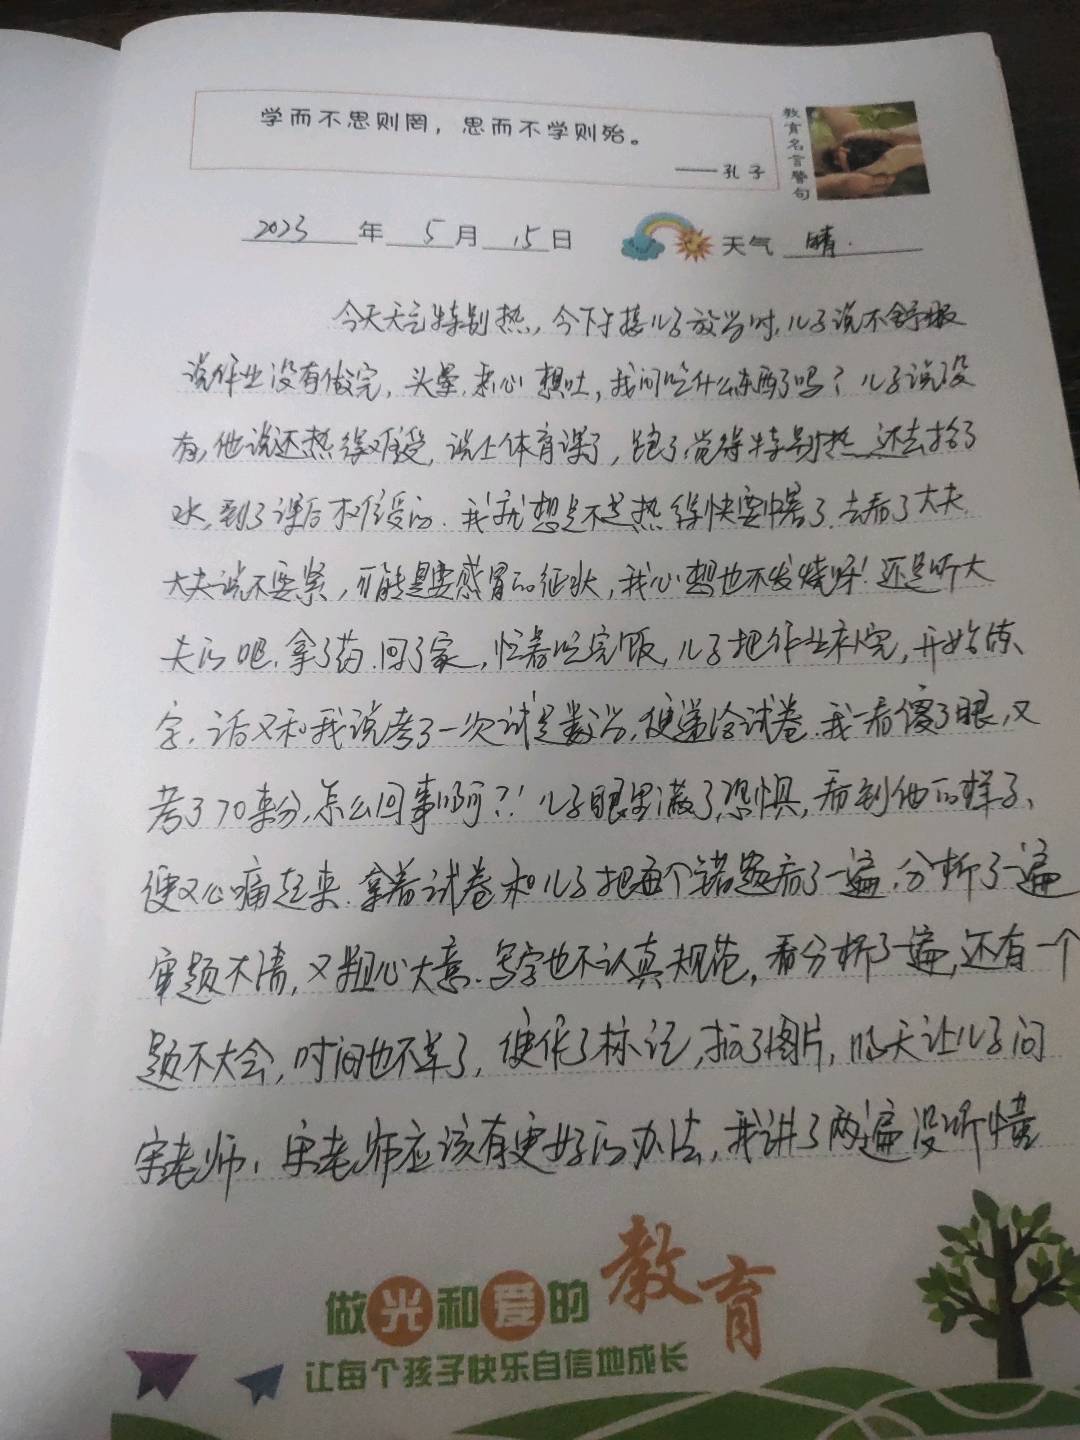 学而不思则罔，思而不学则殆。
——孔子
教育名言警句
2023年5月15日 天气 晴.
今天天气特别热，今下午接儿子放学时，儿子说不舒服
说作业没有做完，头晕，恶心想吐，我问吃什么东西了吗？儿子说没
有，他说还热得难受，说上体育课了，跑了觉得特别热，还去接了
水，到了课后才难受的．我就想是不是热得快要中暑了．去看了大夫，
大夫说不要紧，可能是要感冒的征状，我心想也不发烧呀！还是听大
夫的吧，拿了药，回了家，忙着吃完饭，儿子把作业补完，开始练
字，话又和我说考了一次试是数学，便递给试卷．我一看傻了眼，又
考了70来分，怎么回事啊？！儿子眼里满了恐惧，看到他的样子、
便又心痛起来．拿着试卷和儿子把每个错题看了一遍，分析了一遍
审题不清，又粗心大意．写字也不认真规范，看分析了一遍，还有一个
题不大会，时间也不早了，便作了标记，拍了图片，明天让儿子问
宋老师，宋老师应该有更好的办法，我讲了两遍没听懂
做光和爱的教育
让每个孩子快乐自信地成长